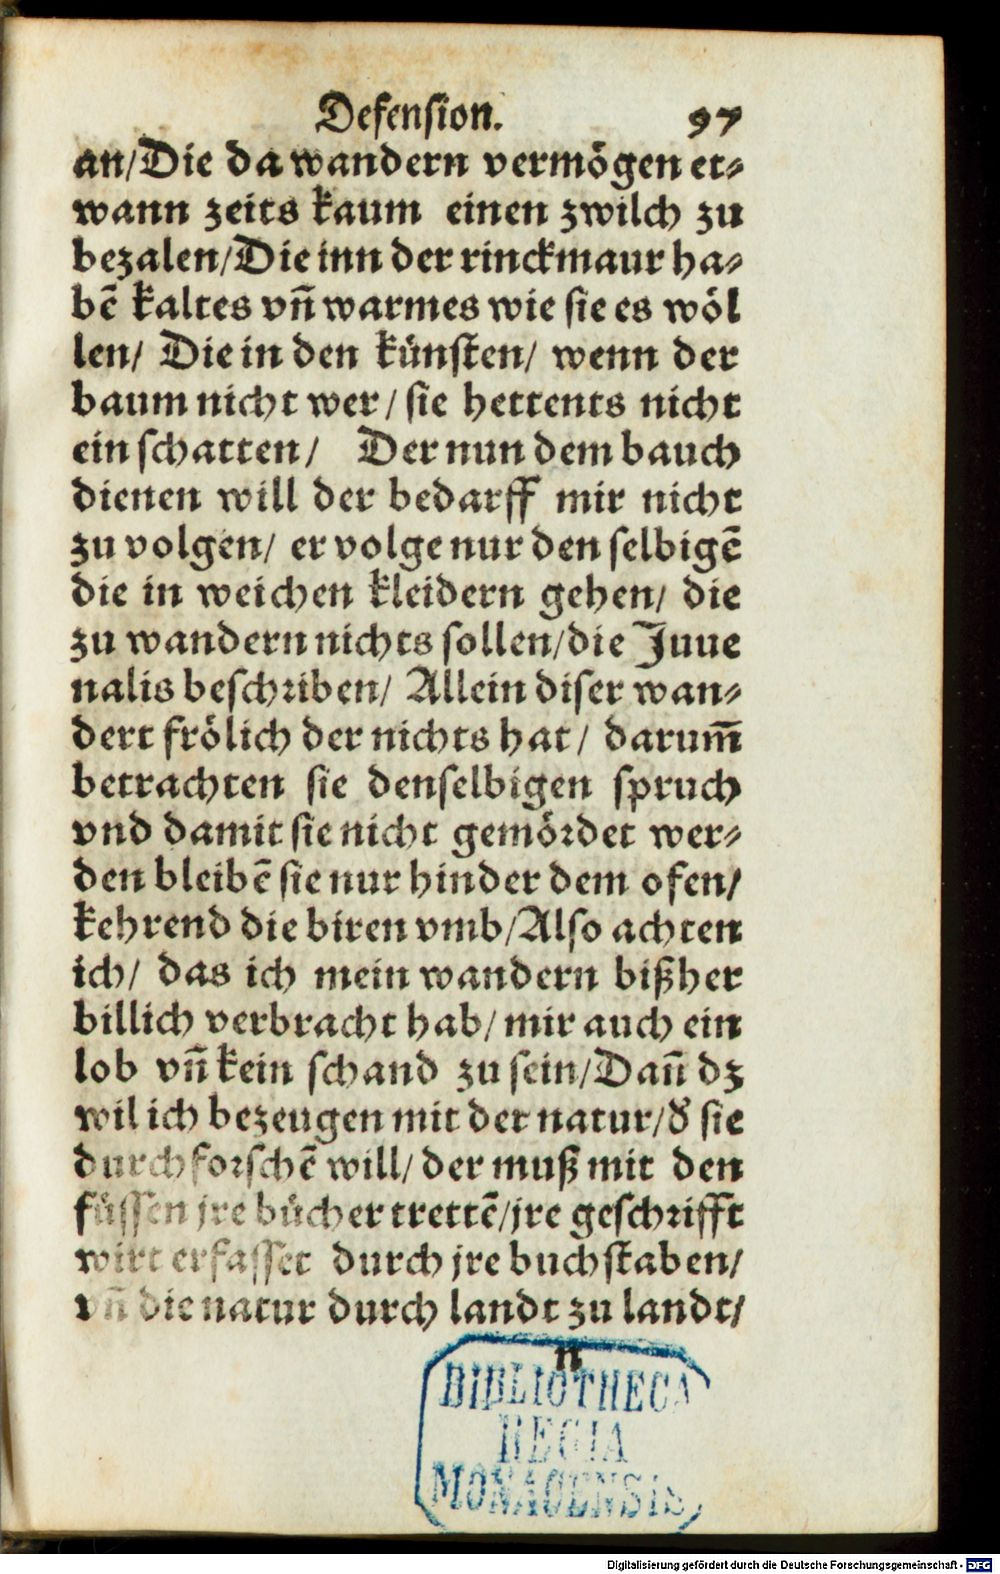 Defension. 97
an/Die da wandern vermögen et⸗
wann zeits kaum einen zwilch zu
bezalen/Die inn der rinckmaur ha⸗
bē kaltes vn̄ warmes wie sie es wöl
len/ Die in den künsten/ wenn der
baum nicht wer/ sie hettents nicht
ein schatten/ Der nun dem bauch
dienen will der bedarff mir nicht
zu volgen/ er volge nur den selbigē
die in weichen kleidern gehen/ die
zu wandern nichts sollen/die Juue
nalis beschriben/ Allein diser wan⸗
dert frölich der nichts hat/ darum̄
betrachten sie denselbigen spruch
vnd damit sie nicht gemördet wer⸗
den bleibē sie nur hinder dem ofen/
kehrend die biren vmb/Also achten
ich/ das ich mein wandern bißher
billich verbracht hab/ mir auch ein
lob vn̄ kein schand zu sein/Dan̄ dz
wil ich bezeugen mit der natur/d' sie
durchforschē will/ der muß mit den
füssen jre bücher trettē/jre geschrifft
wirt erfasset durch jre buchstaben/
vn̄ die natur durch landt zu landt/
n
BIBLIOTHECA
REGIA
MONACENSIS
Digitalisierung gefördert durch die Deutsche Forschungsgemeinschaft - DFG